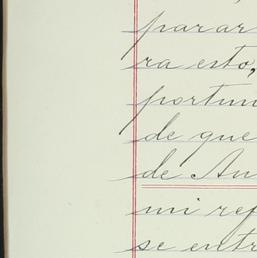 parar
ra esto,
portun
de que
de An
mi ref
se entr